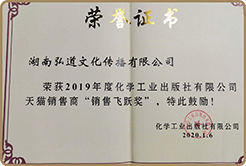 荣誉证书
湖南弘道文化传播有限公司
荣获2019年度化学工业出版社有限公司
天猫销售商“销售飞跃奖”，特此鼓励！
化学工业出版社有限公司
2020.1.6